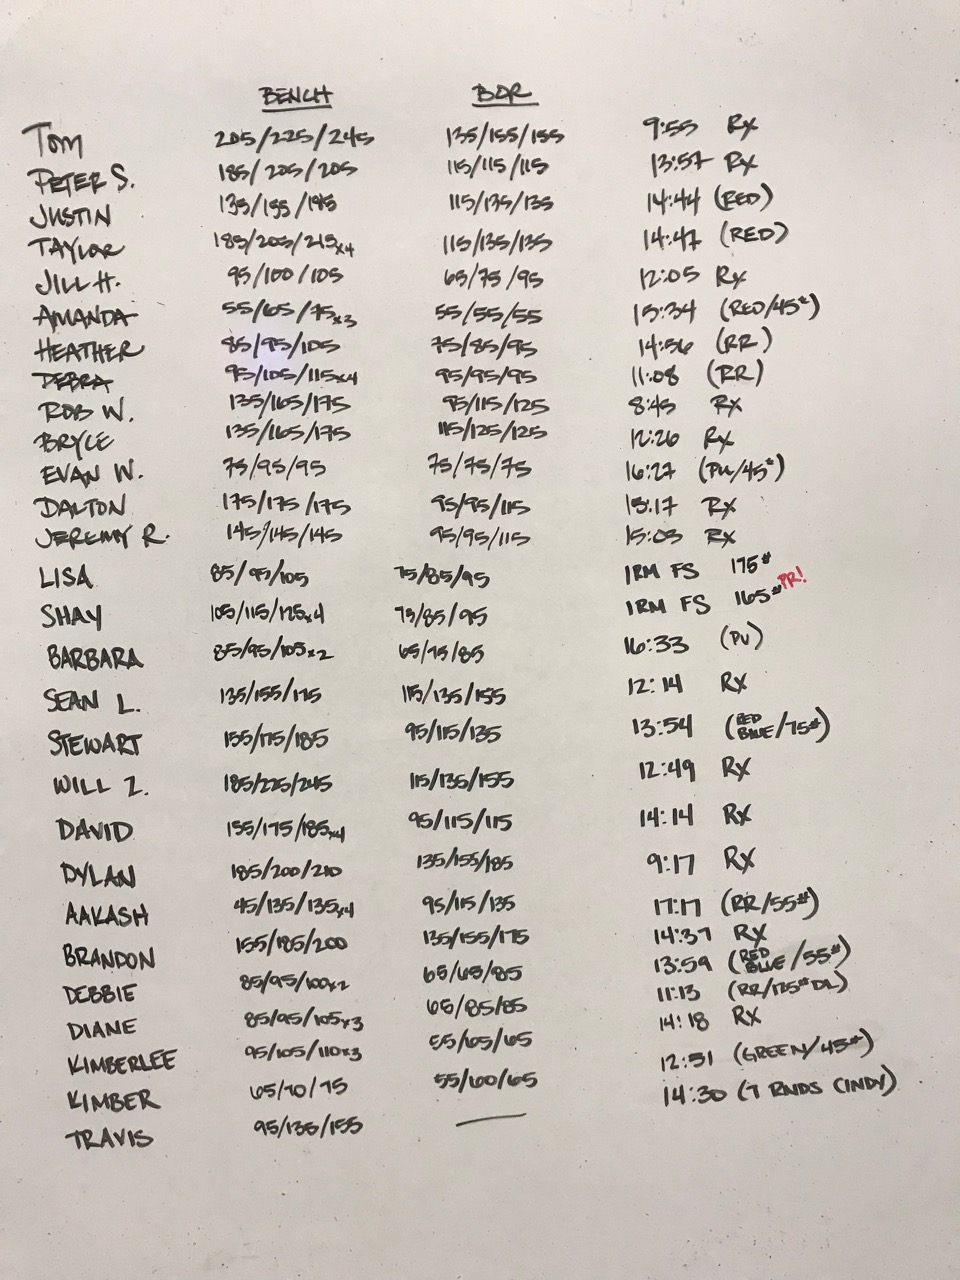 BENCH BOR
Tom 205/225/245 135/155/155 9:55 Rx
PETER S. 185/205/205 115/115/115 13:57 Rx
JUSTIN 135/155/145 115/135/135 14:44 (RED)
TAYLOR 185/205/215x4 115/135/135 14:47 (RED)
JILL H. 95/100/105 65/75/95 12:05 Rx
AMANDA 55/65/75x3 55/55/55 15:34 (RED/45#)
HEATHER 85/95/105 75/85/95 14:56 (RR)
DEBRA 95/105/115x4 95/95/95 11:08 (RR)
ROB W. 135/165/175 95/115/125 8:45 Rx
BRYCE 135/165/175 115/125/125 12:26 Rx
EVAN W. 75/95/95 75/75/75 16:27 (PU/45#)
DALTON 175/175/175 95/95/115 15:17 Rx
JEREMY R. 145/145/145 95/95/115 15:03 Rx
LISA 85/95/105 75/85/95 1RM FS 175#
SHAY 105/115/125x4 75/85/95 1RM FS 165# PR!
BARBARA 85/95/105x2 65/75/85 16:33 (PU)
SEAN L. 135/155/175 115/135/155 12:14 Rx
STEWART 155/175/185 95/115/135 13:54 (RED BLUE/75#)
WILL Z. 185/225/245 115/135/155 12:49 Rx
DAVID 155/175/185x4 95/115/115 14:14 Rx
DYLAN 185/200/210 135/155/185 9:17 Rx
AAKASH 95/135/135x4 95/115/135 17:17 (RR/55#)
BRANDON 155/185/200 135/155/175 14:37 Rx
DEBBIE 85/95/100x2 65/65/85 13:59 (RED BLUE/55#)
DIANE 85/95/105x3 65/85/85 11:13 (RR/135# DL)
KIMBERLEE 95/105/110x3 55/65/65 14:18 Rx
KIMBER 65/70/75 55/60/65 12:51 (GREEN/45#)
TRAVIS 95/135/155 — 14:30 (7 RNDS CINDY)